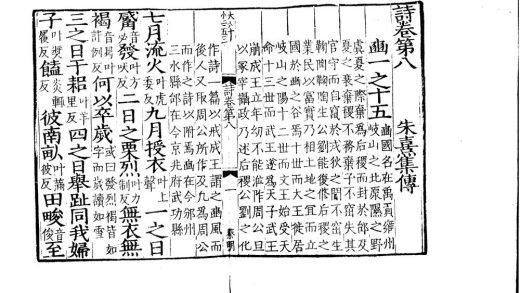 詩卷第八 朱熹集傳
豳一之十五 豳國名在禹貢雍州
岐山之北原隰之野
虞夏之際棄爲后稷而封於邰及
夏之衰棄稷不務棄子不窋失其
官守而自竄於戎狄之閒不窋生
鞠陶鞠陶生公劉能復脩后稷之
業民以富實乃相土地之宜而立
國於豳之谷焉十世而大王徙居
岐山之陽十二世而文王始受天
命十三世而武王遂爲天子武王
崩成王立年幼不能涖阼周公旦
以冢宰攝政乃述后稷公劉之化
作詩一篇以戒成王謂之豳風而
後人又取周公所作及凡爲周公
而作之詩以附焉豳在今邠州
三水縣邰在今京兆府武功縣
七月流火叶虎委反九月授衣叶上聲一之日
觱音必發叶方吠反二之日栗烈叶力制反無衣無
褐音曷叶許例反何以卒歲或曰發烈褐皆如字而歲讀如雪
三之日于耜叶羊里反四之日舉趾同我婦
子叶奬里反饁炎輒反彼南畝叶滿彼反田畯音俊至
詩卷第八
一